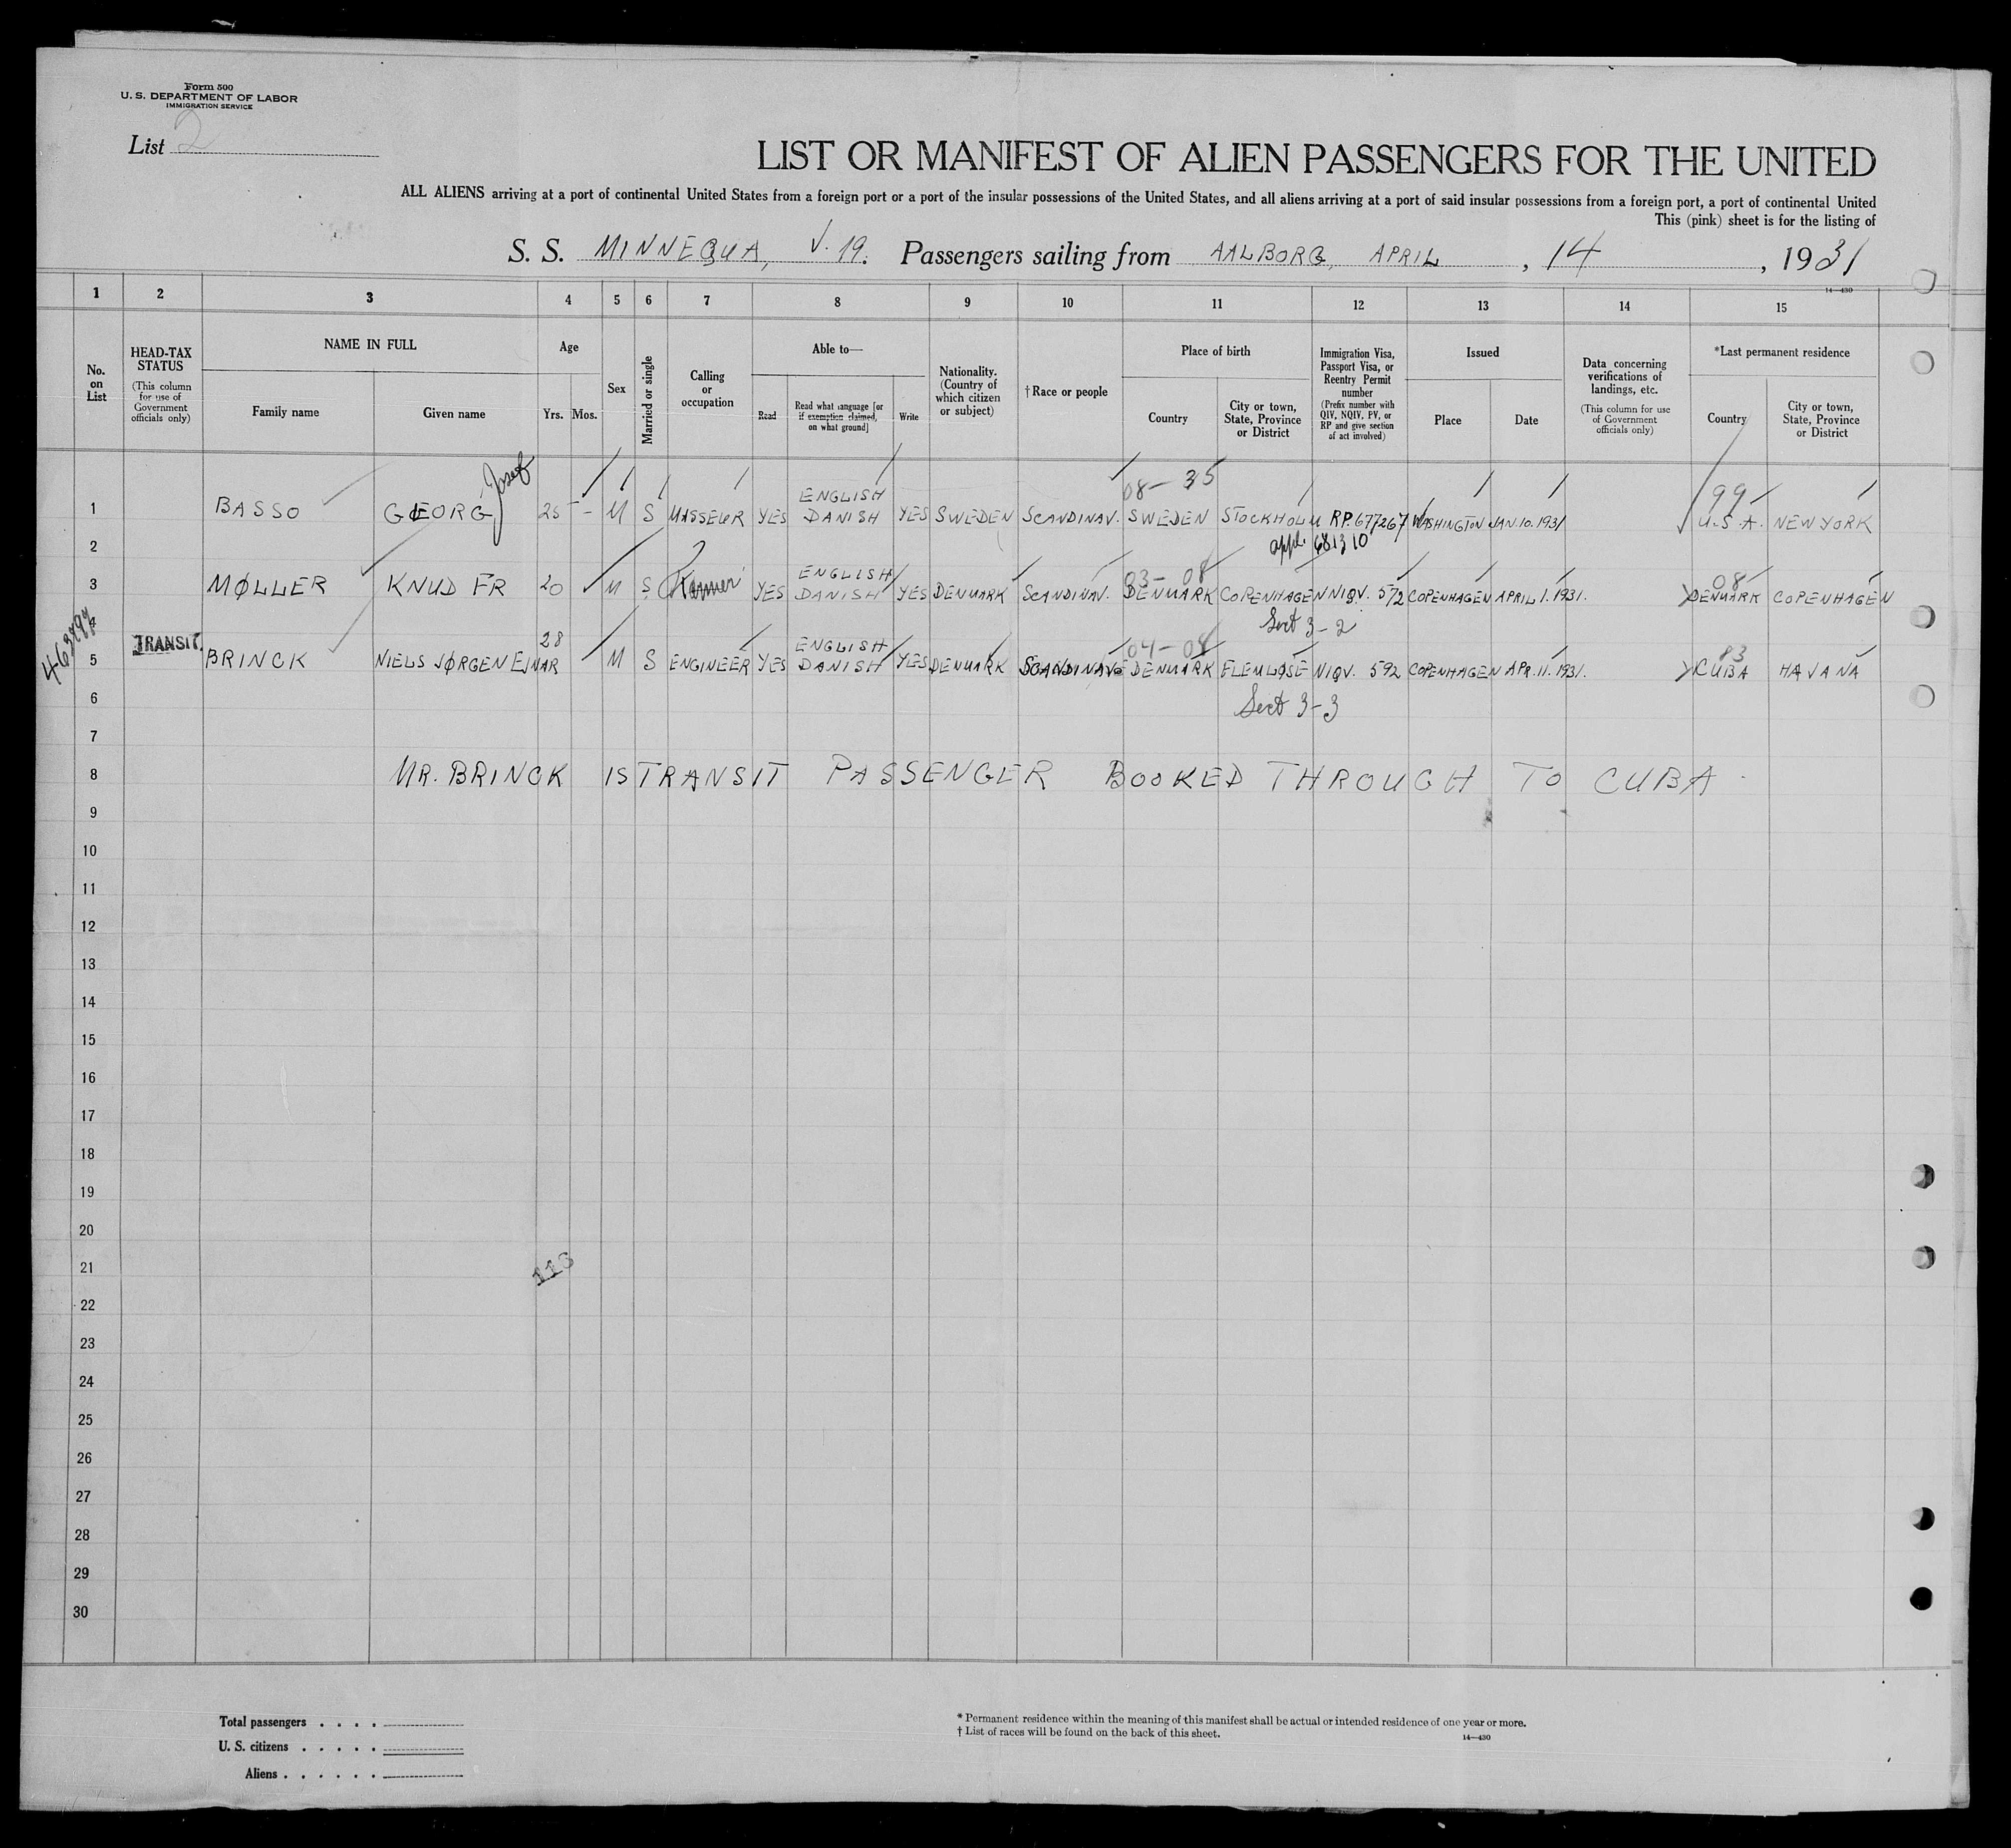 Form 500
U. S. DEPARTMENT OF LABOR
IMMIGRATION SERVICE
List 2
LIST OR MANIFEST OF ALIEN PASSENGERS FOR THE UNITED
ALL ALIENS arriving at a port of continental United States from a foreign port or a port of the insular possessions of the United States, and all aliens arriving at a port of said insular possessions from a foreign port, a port of continental United
This (pink) sheet is for the listing of
S. S. MINNEQUA, V. 19. Passengers sailing from AALBORG, APRIL, 14, 1931
14—430
1 2 3 4 5 6 7 8 9 10 11 12 13 14 15
No. on List
HEAD-TAX STATUS
(This column for use of Government officials only)
NAME IN FULL
Family name
Given name
Age
Yrs.
Mos.
Sex
Married or single
Calling or occupation
Able to—
Read
Read what language [or if exemption claimed, on what ground]
Write
Nationality. (Country of which citizen or subject)
†Race or people
Place of birth
Country
City or town, State, Province or District
Immigration Visa, Passport Visa, or Reentry Permit number
(Prefix number with QIV, NQIV, PV, or RP and give section of act involved)
Issued
Place
Date
Data concerning verifications of landings, etc.
(This column for use of Government officials only)
*Last permanent residence
Country
City or town, State, Province or District
Josef
08— 35
99
ENGLISH
1 BASSO GEORG 25 - M S MASSEUR YES DANISH YES SWEDEN SCANDINAV. SWEDEN STOCKHOLM RP. 677267 WASHINGTON JAN. 10. 1931 U.S.A. NEW YORK
2 appl. 681310
ENGLISH
03— 08
08
3 MØLLER KNUD FR 20 M S YES DANISH YES DENMARK SCANDINAV. DENMARK COPENHAGEN NIQV. 572 COPENHAGEN APRIL 1. 1931. DENMARK COPENHAGEN
4 Sect 3-2
TRANSIT.
28
ENGLISH
04— 08
83
5 BRINCK NIELS JØRGEN EJNAR M S ENGINEER YES DANISH YES DENMARK SCANDINAV. DENMARK FLEMLØSE NIQV. 592 COPENHAGEN APR. 11. 1931. CUBA HAVANA
6 Sect 3-3
7
8 MR. BRINCK IS TRANSIT PASSENGER BOOKED THROUGH TO CUBA
9
10
11
12
13
14
15
16
17
18
19
20
21 113
22
23
24
25
26
27
28
29
30
Total passengers . . . .
U. S. citizens . . . . .
Aliens . . . . . .
* Permanent residence within the meaning of this manifest shall be actual or intended residence of one year or more.
† List of races will be found on the back of this sheet.
14—430